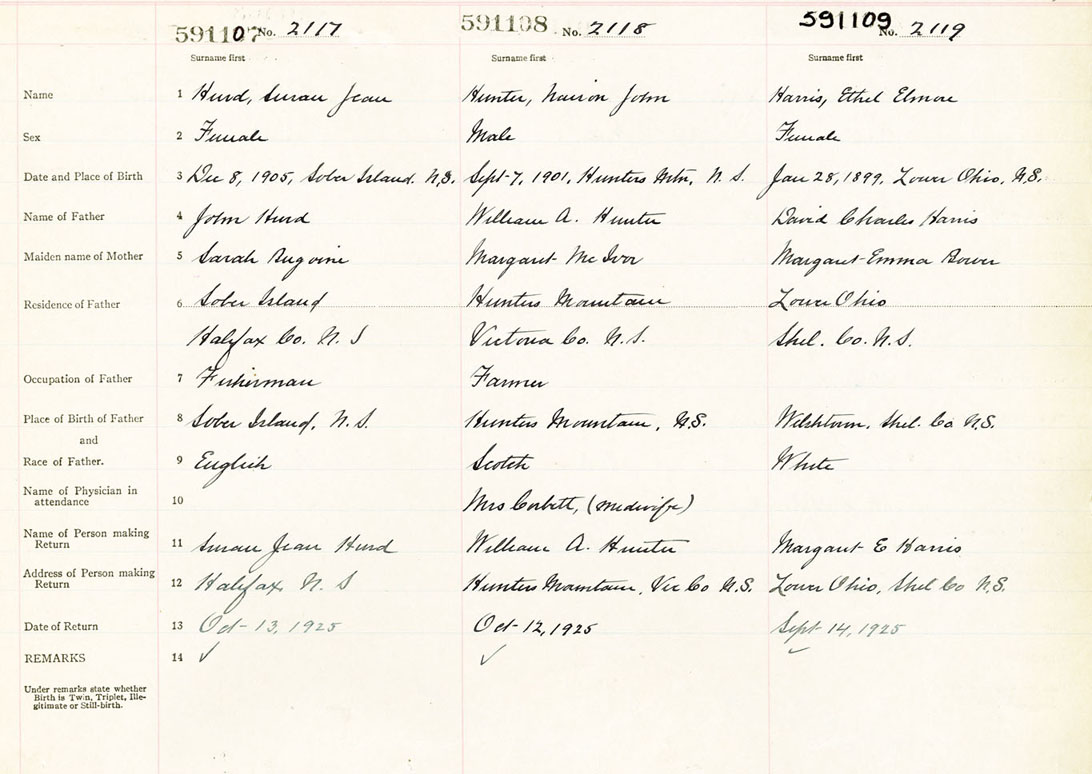 591107 No. 2117 591108 No. 2118 591109 No. 2119
Surname first Surname first Surname first
Name 1 Hurd, Susan Jean Hunter, John Harris, Ethel Elmore
Sex 2 Female Male Female
Date and Place of Birth 3 Dec 8, 1905, Sober Island. N.S. Sept 7, 1901, Hunters Mtn, N. S. Jan 28, 1899, Lower Ohio, N.S.
Name of Father 4 John Hurd William A. Hunter David Charles Harris
Maiden name of Mother 5 Sarah Margaret McIvor Margaret Emma Bower
Residence of Father 6 Sober Island Hunters Mountain Lower Ohio
Halifax Co. N. S Victoria Co. N.S. Shel. Co. N.S.
Occupation of Father 7 Fisherman Farmer
Place of Birth of Father 8 Sober Island, N.S. Hunters Mountain, N.S. Welshtown, Shel. Co N.S.
and
Race of Father. 9 English Scotch White
Name of Physician in
attendance 10 Mrs Corbett, (medwife)
Name of Person making
Return 11 Susan Jean Hurd William A. Hunter Margaret E Harris
Address of Person making
Return 12 Halifax N. S Hunters Mountain, Vic Co N.S. Lower Ohio, Shel Co N.S.
Date of Return 13 Oct 13, 1925 Oct 12, 1925 Sept 14, 1925
REMARKS 14 ✓ ✓
Under remarks state whether
Birth is Twin, Triplet, Ille-
gitimate or Still-birth.